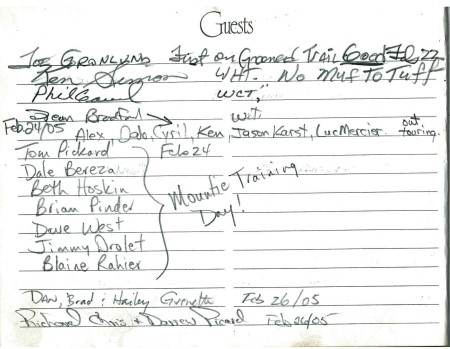 Guests
JOE GRONLUND First on Groomed Trail Good Feb 22
Ken WHT. No Muf To Tuff
Phil WCT,"
Dean WCT
Feb 24/05 Alex Dab, Cyril, Ken, Jason Karst, Luc Mercier. out touring.
Tom Pickard Feb 24
Dale Bereza
Beth Hoskin Mountie Training
Brian Pinder Day!
Dave West
Jimmy Drolet
Blaine Rahier
Dan, Brad & Hailey Guenette Feb 26/05
Richard Chris & Darren Picard Feb 26/05